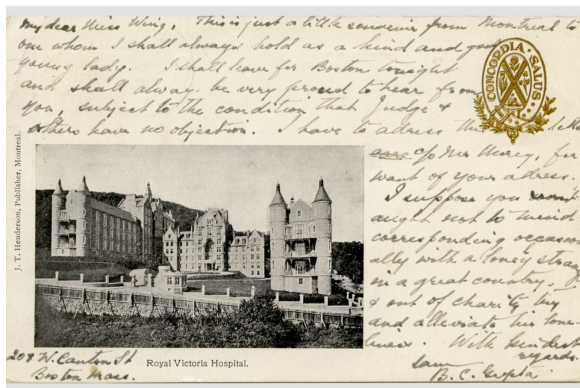 My dear Miss Wing, This is just a little souvenir from Montreal to
one whom I shall always hold as a kind and good
young lady. I shall leave for Boston tonight
and shall alway be very proud to hear from
you, subject to the condition that Judge &
others have no objection. I have to adress this
CONCORDIA SALUS
care c/o Mr, for
want of your adress.
I suppose you
aught not to mind
corresponding occasion-
ally with a lonely
in a great country.
& out of charity try
and alleviate his lone-
liness. With kindest
regards.
B. C. Gupta
209 W. Canton St
Boston Mass.
Royal Victoria Hospital.
J. T. Henderson, Publisher, Montreal.